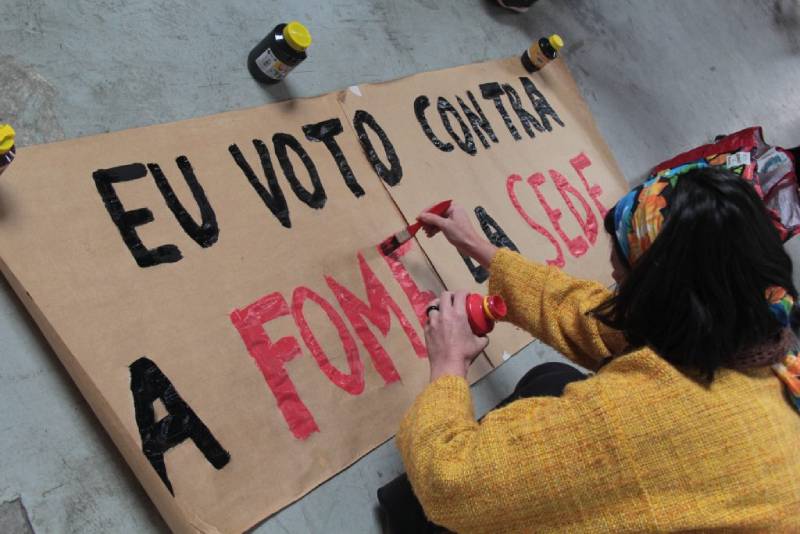 EU VOTO CONTRA
A FOME A SEDE